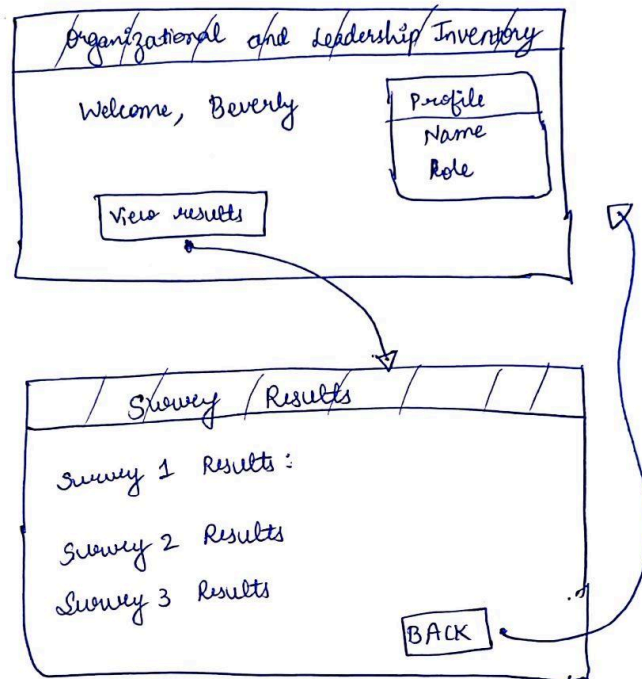 Organizational and Leadership Inventory
Welcome, Beverly
Profile
Name
Role
View results
Survey Results
Survey 1 Results:
Survey 2 Results
Survey 3 Results
BACK